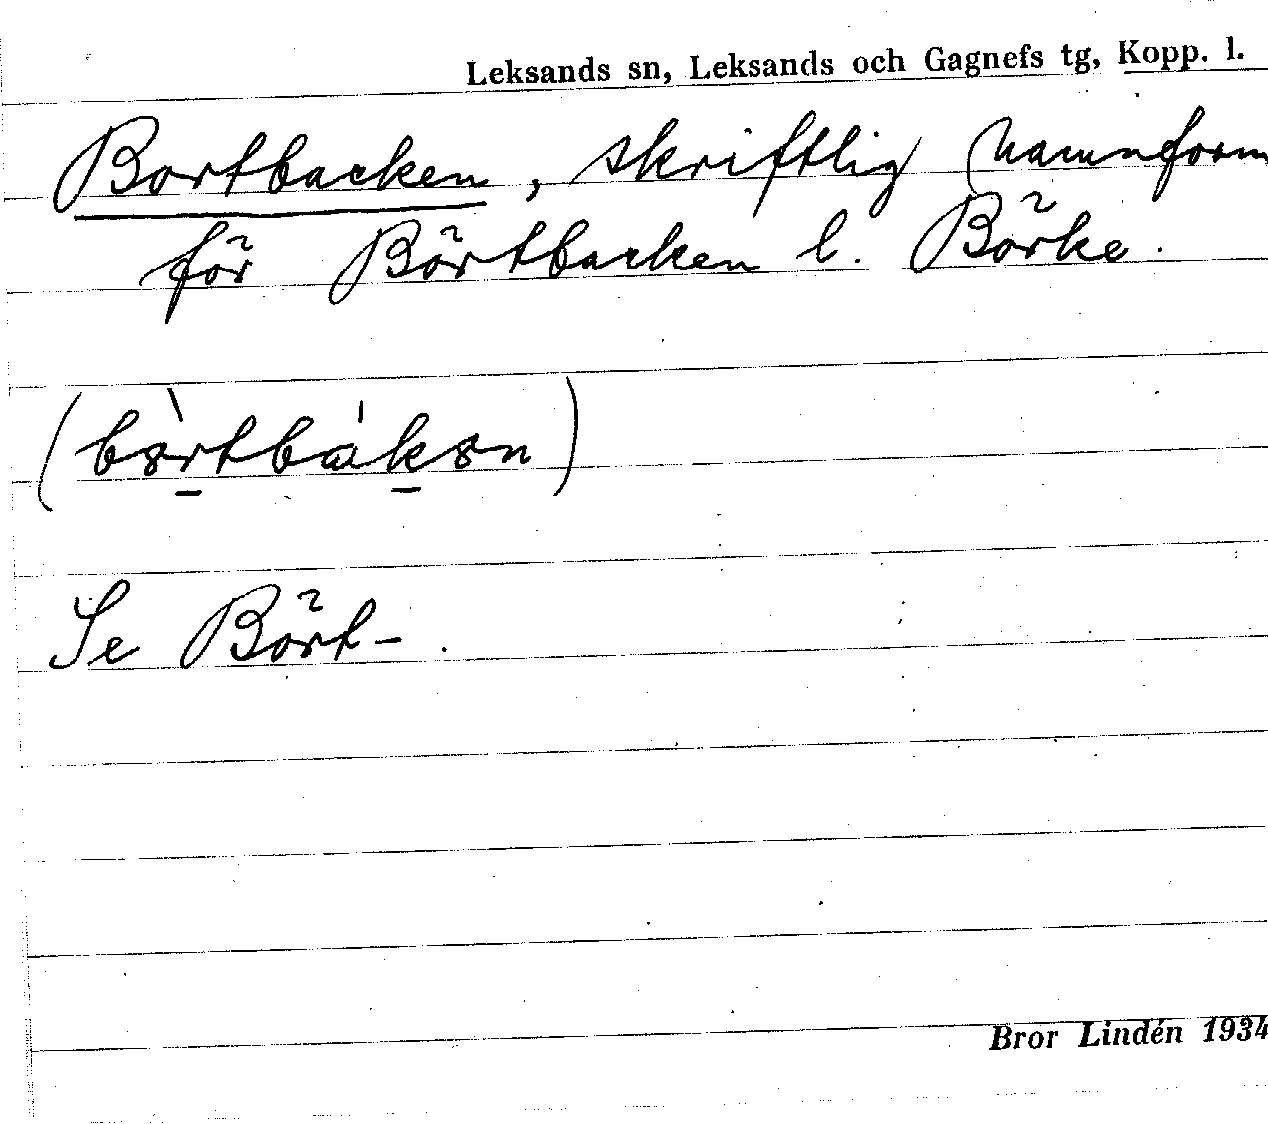 Leksands sn, Leksands och Gagnefs tg, Kopp. l.
Bortbacken, skriftlig namnform
för Börtbacken l. Börke.
Se Bört-.
Bror Lindén 1934